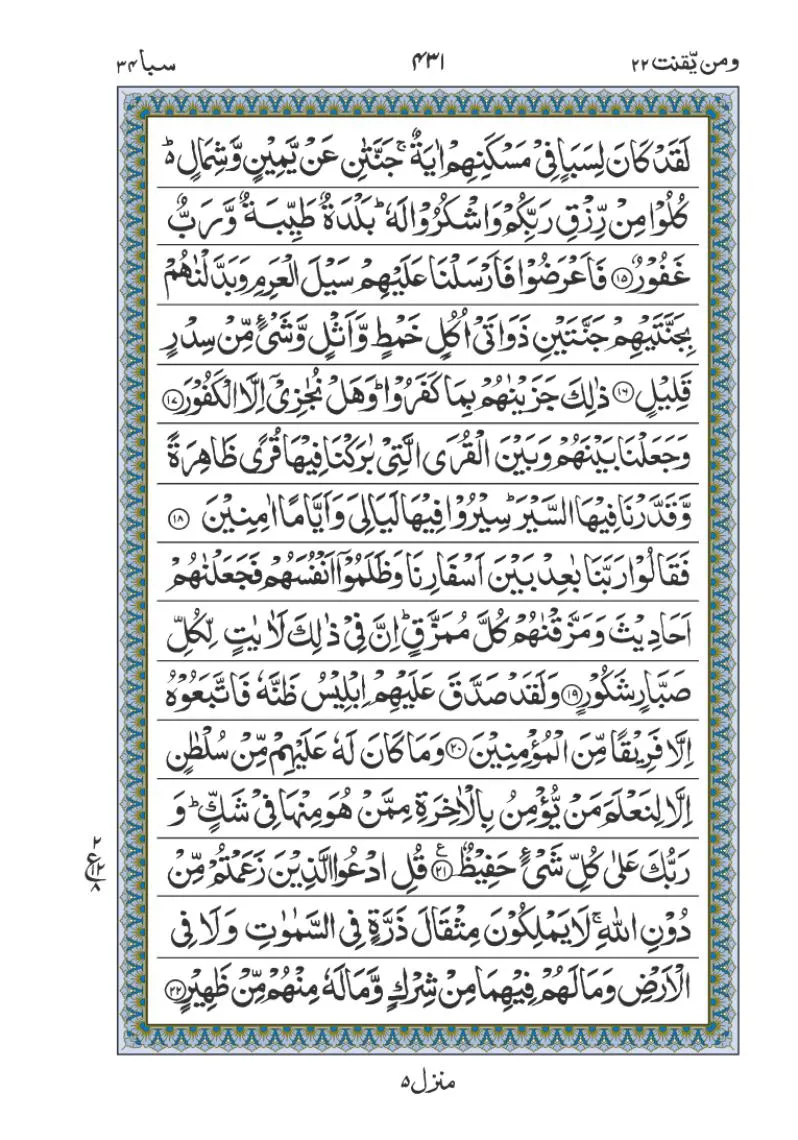 ومن یّقنت ۲۲
۴۳۱
سبا ۳۴
لَقَدۡ كَانَ لِسَبَاٍ فِىۡ مَسۡكَنِهِمۡ اٰيَةٌ ۚ جَنَّتٰنِ عَنۡ يَّمِيۡنٍ وَّشِمَالٍ ؕ
كُلُوۡا مِنۡ رِّزۡقِ رَبِّكُمۡ وَاشۡكُرُوۡا لَهٗ ؕ بَلۡدَةٌ طَيِّبَةٌ وَّرَبٌّ
غَفُوۡرٌ ۝۱۵ فَاَعۡرَضُوۡا فَاَرۡسَلۡنَا عَلَيۡهِمۡ سَيۡلَ الۡعَرِمِ وَبَدَّلۡنٰهُمۡ
بِجَنَّتَيۡهِمۡ جَنَّتَيۡنِ ذَوَاتَىۡ اُكُلٍ خَمۡطٍ وَّاَثۡلٍ وَّشَىۡءٍ مِّنۡ سِدۡرٍ
قَلِيۡلٍ ۝۱۶ ذٰلِكَ جَزَيۡنٰهُمۡ بِمَا كَفَرُوۡا ؕ وَهَلۡ نُجٰزِىۡۤ اِلَّا الۡكَفُوۡرَ ۝۱۷
وَجَعَلۡنَا بَيۡنَهُمۡ وَبَيۡنَ الۡقُرَى الَّتِىۡ بٰرَكۡنَا فِيۡهَا قُرًى ظَاهِرَةً
وَّقَدَّرۡنَا فِيۡهَا السَّيۡرَ ؕ سِيۡرُوۡا فِيۡهَا لَيَالِىَ وَاَيَّامًا اٰمِنِيۡنَ ۝۱۸
فَقَالُوۡا رَبَّنَا بٰعِدۡ بَيۡنَ اَسۡفَارِنَا وَظَلَمُوۡۤا اَنۡفُسَهُمۡ فَجَعَلۡنٰهُمۡ
اَحَادِيۡثَ وَمَزَّقۡنٰهُمۡ كُلَّ مُمَزَّقٍ ؕ اِنَّ فِىۡ ذٰلِكَ لَاٰيٰتٍ لِّكُلِّ
صَبَّارٍ شَكُوۡرٍ ۝۱۹ وَلَقَدۡ صَدَّقَ عَلَيۡهِمۡ اِبۡلِيۡسُ ظَنَّهٗ فَاتَّبَعُوۡهُ
اِلَّا فَرِيۡقًا مِّنَ الۡمُؤۡمِنِيۡنَ ۝۲۰ وَمَا كَانَ لَهٗ عَلَيۡهِمۡ مِّنۡ سُلۡطٰنٍ
اِلَّا لِنَعۡلَمَ مَنۡ يُّؤۡمِنُ بِالۡاٰخِرَةِ مِمَّنۡ هُوَ مِنۡهَا فِىۡ شَكٍّ ؕ وَ
رَبُّكَ عَلٰى كُلِّ شَىۡءٍ حَفِيۡظٌ ۝۲۱ ع قُلِ ادۡعُوا الَّذِيۡنَ زَعَمۡتُمۡ مِّنۡ
۲
ع ۱۲
۸
دُوۡنِ اللّٰهِ ۚ لَا يَمۡلِكُوۡنَ مِثۡقَالَ ذَرَّةٍ فِى السَّمٰوٰتِ وَلَا فِى
الۡاَرۡضِ وَمَا لَهُمۡ فِيۡهِمَا مِنۡ شِرۡكٍ وَّمَا لَهٗ مِنۡهُمۡ مِّنۡ ظَهِيۡرٍ ۝۲۲
منزل ۵